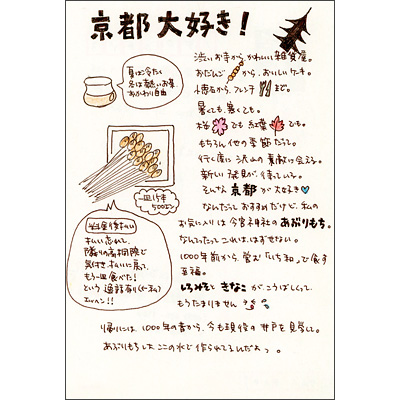 京都大好き!
渋いお寺からかわいい雑貨屋。
おだんごからおいしいケーキ。
懐石からフレンチまで。
暑くても、寒くても。
桜でも紅葉でも。
もちろん他の季節だって。
行く度に沢山の素敵に会える。
新しい発見が待っている。
そんな京都が大好き
なんだっておすすめだけど、私の
お気に入りは今宮神社のあぶりもち。
なんてったってこれははずせない。
1000年前から営む「いち和」で食す
至福。
しろみそときなこがこうばしくって、
もうたまりません
帰りには、1000年の昔から、今も現役の井戸を見学して。
あぶりもちは、ここの水で作られてるんだよっ。
夏は冷たく
冬は熱いお茶
おかわり自由
一皿15本
500エン
お金後払い
払い忘れて、
隣りの高桐院で
気付き、払いに戻って、
もう一皿食べた!
という逸話有り(←私)
エッヘン!!